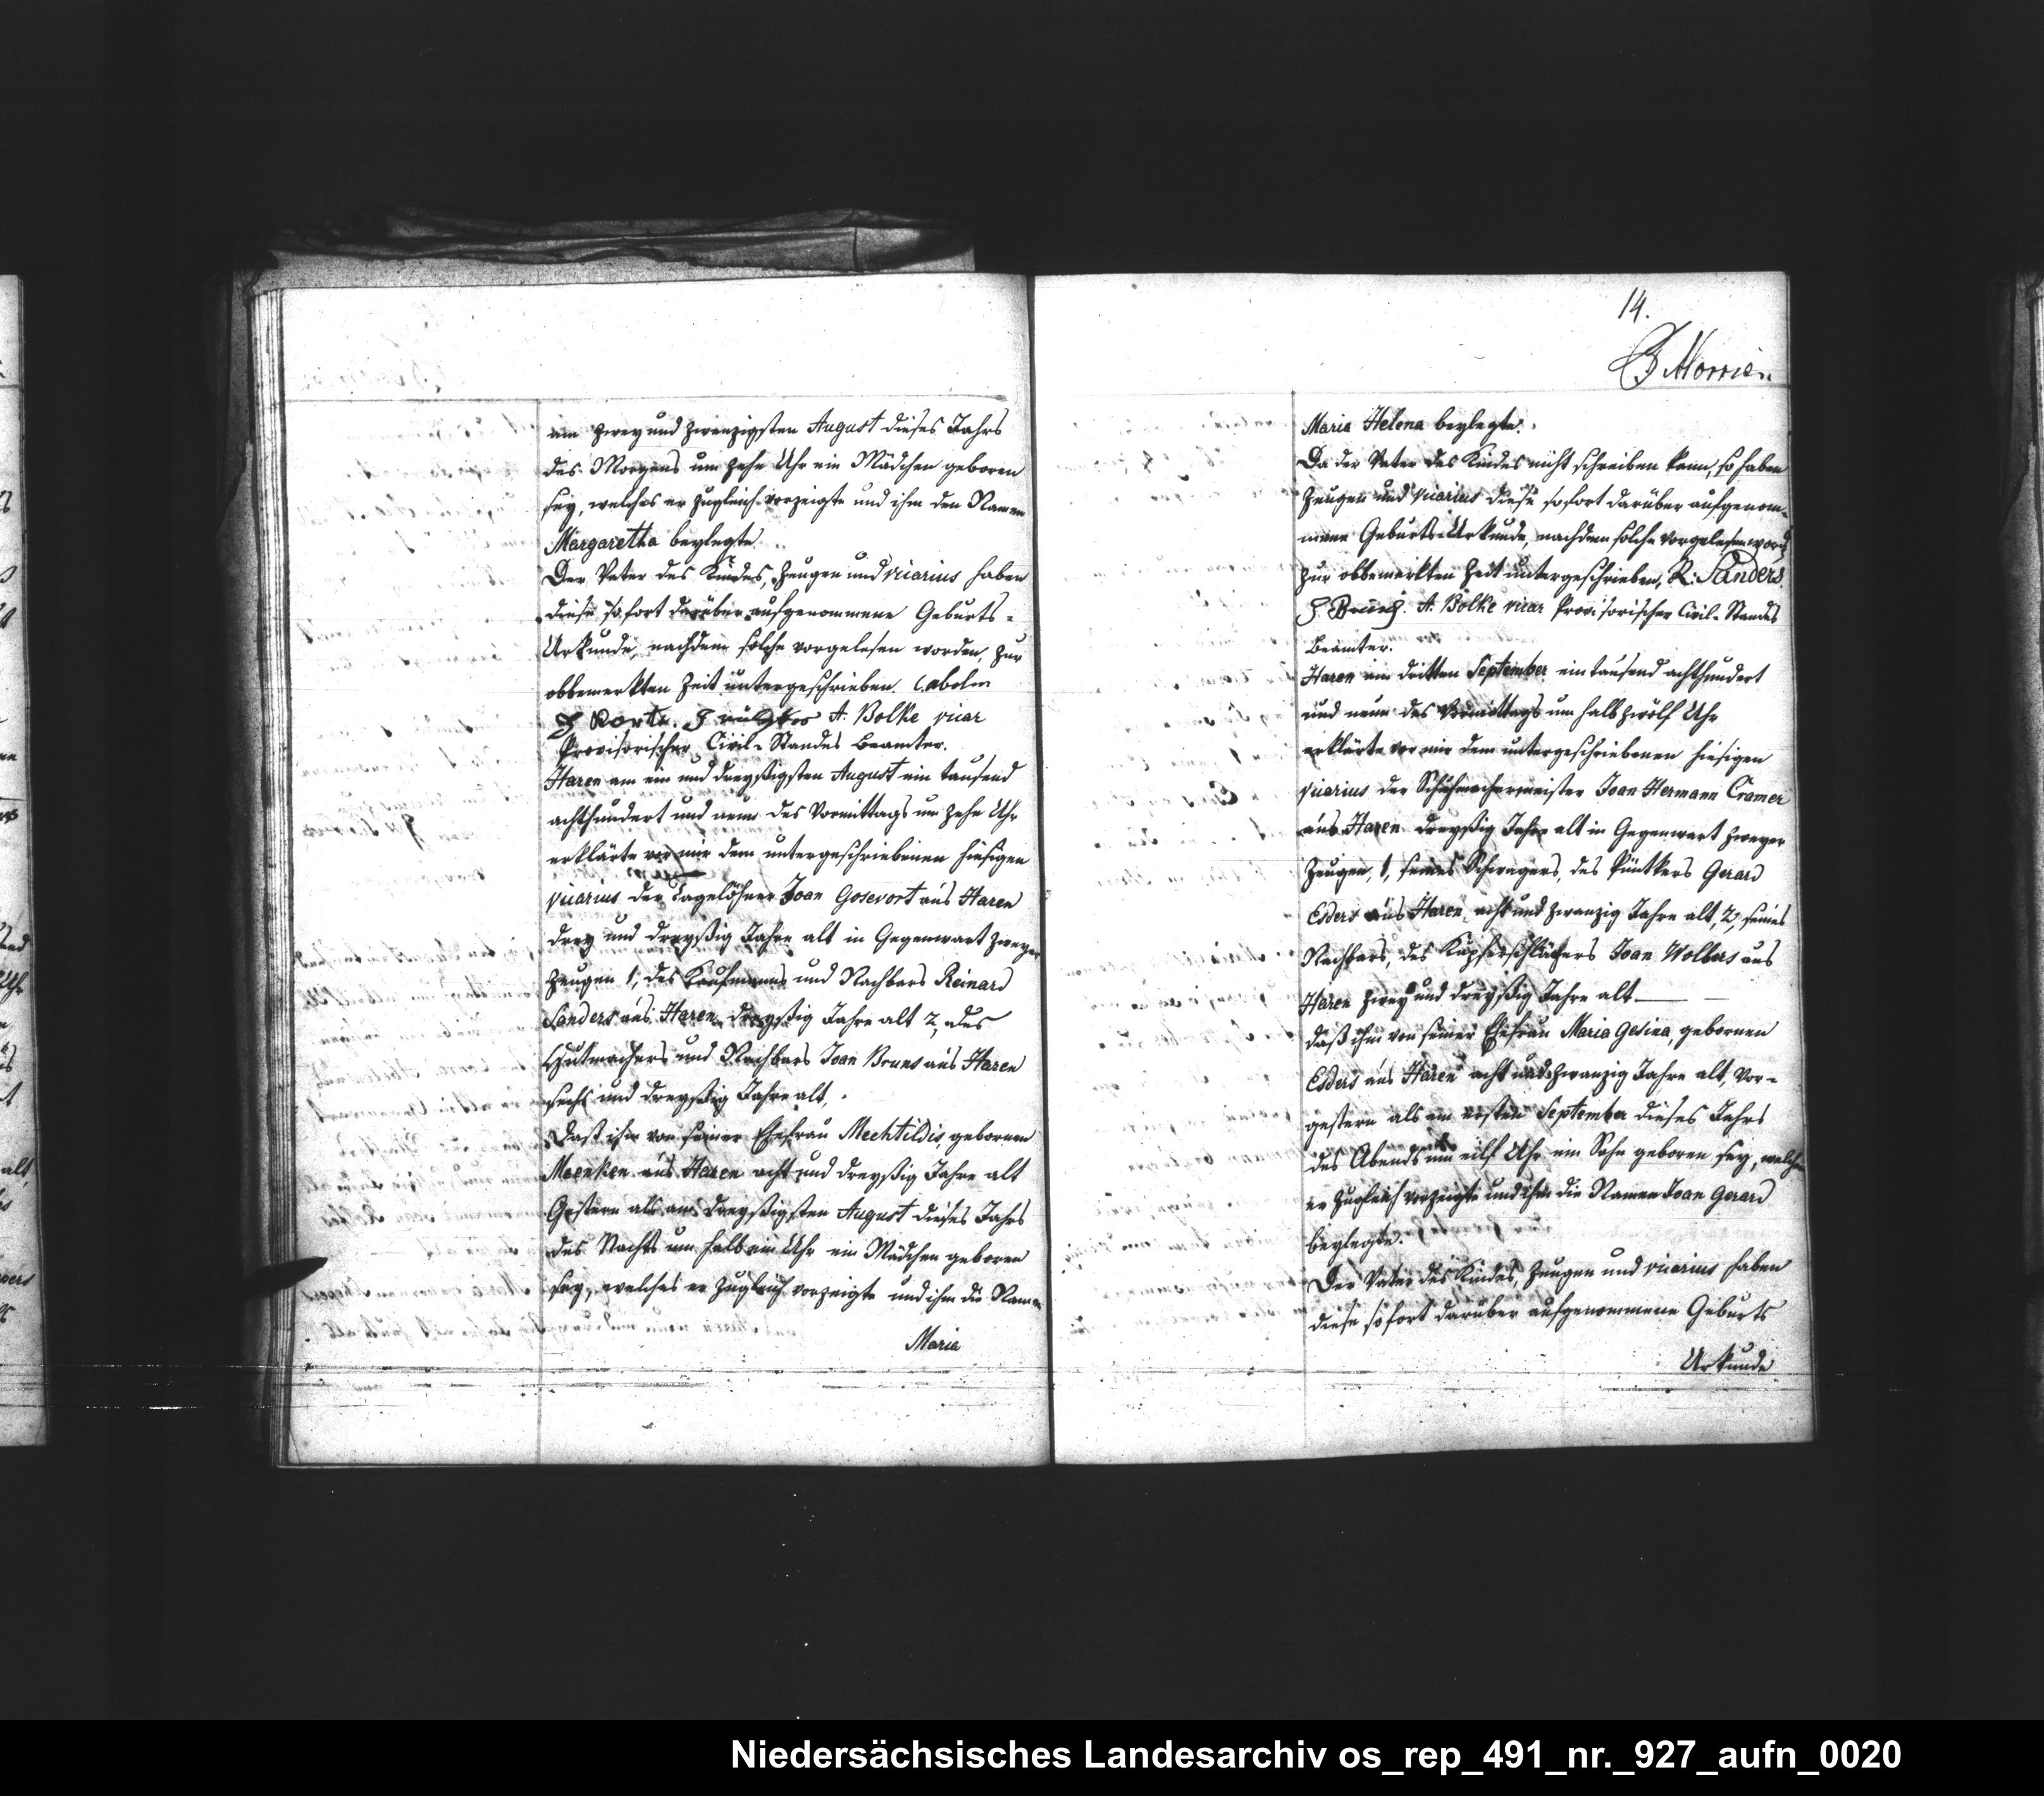 am zwey und zwanzigsten August dieses Jahrs
des Morgens um zehn Uhr ein Mädchen geboren
sey, welches er zugleich vorzeigte und ihm den Namen
Margaretha beylegte
Der Vater des Kindes, Zeugen und vicarius haben
diese sofort darüber aufgenommene Geburts-
Urkunde, nachdem solche vorgelesen worden, zur
obbemerkten Zeit untergeschrieben.
H Korte. A. Bolke vicar
Provisorischer Civil-Standes Beamter.
Haren am ein und dreyßigsten August ein tausend
achthundert und neun des Vormittags um zehn Uhr
erklärte vor mir dem untergeschriebenen hiesigen
vicarius der Tagelöhner Joan Gosevort aus Haren
drey und dreyßig Jahre alt in Gegenwart zweyer
Zeugen 1, des Kaufmanns und Nachbars Reinard
Sanders aus Haren dreyßig Jahre alt 2, des
Hutmachers und Nachbars Joan Bruns aus Haren
sechs und dreyßig Jahre alt,
Daß ihm von seiner Ehefrau Mechtildis, gebornen
Meenken aus Haren acht und dreyßig Jahre alt
Gestern als am dreyßigsten August dieses Jahrs
des Nachts um halb ein Uhr ein Mädchen geboren
sey, welches er zugleich vorzeigte und ihm die Namen
Maria
14.
Morrien
Maria Helena beylegte.
Da der Vater des Kindes nicht schreiben kann, so haben
Zeugen und vicarius diese sofort darüber aufgenom-
mene Geburts-Urkunde, nachdem solche vorgelesen word
zur obbemerkten Zeit untergeschrieben, R: Sanders.
A. Bolke vicar Provisorischer Civil-Standes
Beamter.
Haren am dritten September ein tausend achthundert
und neun des Vormittags um halb zwölf Uhr
erklärte vor mir dem untergeschriebenen hiesigen
vicarius der Schuhmachermeister Joan Hermann Cramer
aus Haren dreyßig Jahre alt in Gegenwart zweyer
Zeugen, 1, seines Schwagers, des Pünttkers Gerard
Esders aus Haren, acht und zwanzig Jahre alt, 2, seines
Nachbars, des Kupferschlägers Joan Wolbers aus
Haren zwey und dreyßig Jahre alt
daß ihm von seiner Ehefrau Maria Gesina, gebornen
Esders aus Haren acht und zwanzig Jahre alt, Vor-
gestern als am ersten September dieses Jahrs
des Abends um eilf Uhr ein Sohn geboren sey, welchen
er zugleich vorzeigte und ihm die Namen Joan Gerard
beylegte.
Der Vater des Kindes, Zeugen und vicarius haben
diese sofort darüber aufgenommene Geburts
Urkunde
Niedersächsisches Landesarchiv os_rep_491_nr._927_aufn_0020